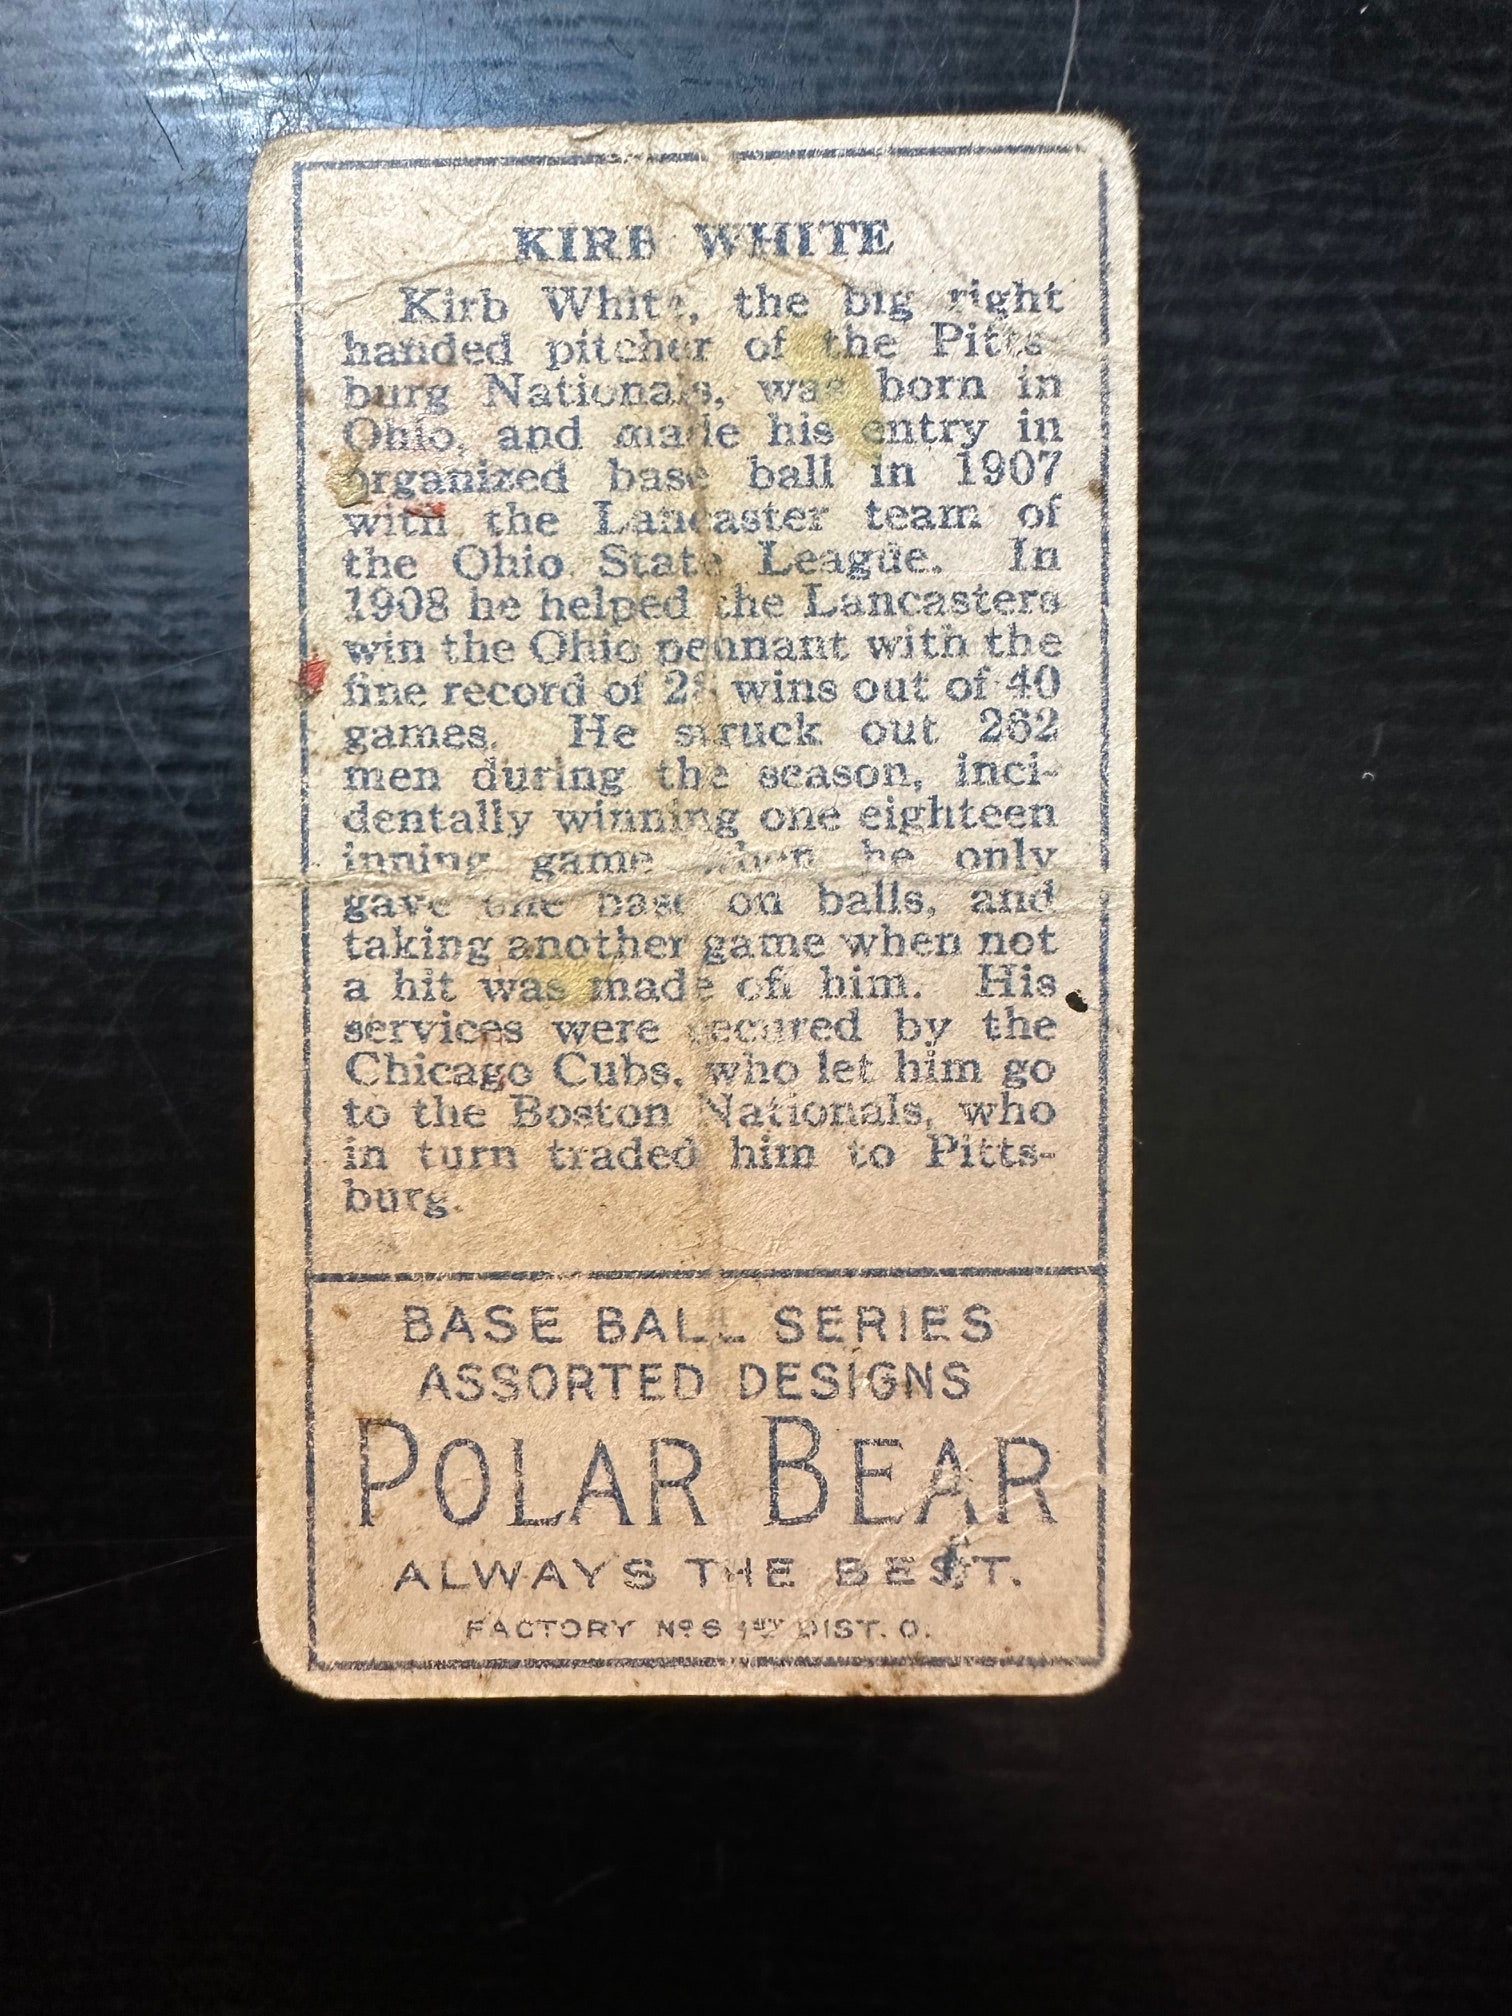 KIRB WHITE
Kirb White, the big right
handed pitcher of the Pitts-
burg Nationals, was born in
Ohio, and made his entry in
organized base ball in 1907
with the Lancaster team of
the Ohio State League. In
1908 he helped the Lancasters
win the Ohio pennant with the
fine record of wins out of 40
games. He struck out 262
men during the season, inci-
dentally winning one eighteen
inning game when he only
gave one base on balls, and
taking another game when not
a hit was made off him. His
services were secured by the
Chicago Cubs, who let him go
to the Boston Nationals, who
in turn traded him to Pitts-
burg.
BASE BALL SERIES
ASSORTED DESIGNS
POLAR BEAR
ALWAYS THE BEST.
FACTORY Nº 6 1ST DIST. O.